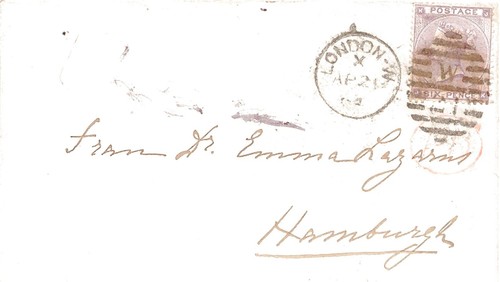 POSTAGE
LONDON-W
X
AP 21
W
SIX PENCE
Frau Dr. Emma Lazarus
Hamburgh